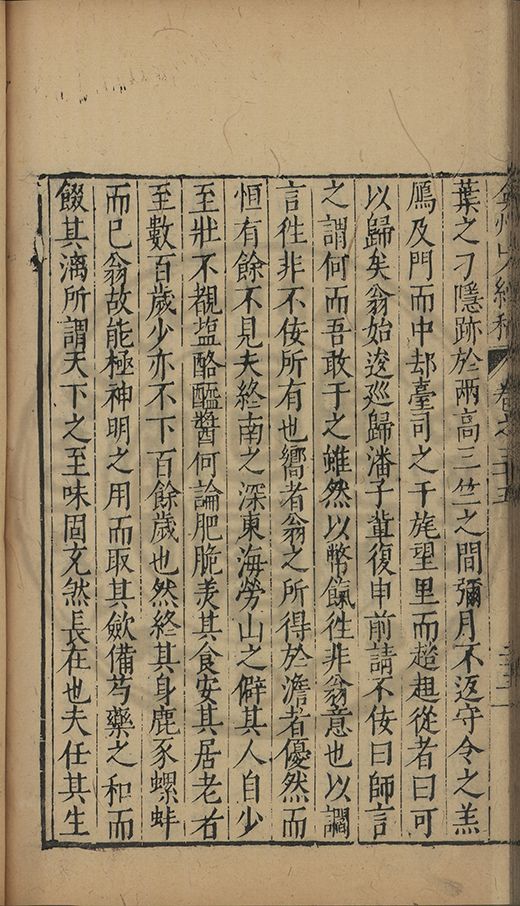 弇州山人續稿 卷之三十五 三十二
葉之刁隱跡於兩高三竺之間彌月不返守令之羔
鴈及門而中却臺司之干旄望里而趑趄從者曰可
以歸矣翁始逡巡歸潘子輩復申前請不佞曰師言
之謂何而吾敢于之雖然以幣餼徃非翁意也以譾
言徃非不佞所有也嚮者翁之所得於澹者優然而
恒有餘不見夫終南之深東海勞山之僻其人自少
至壯不覩盐酪醯醬何論肥脆羙其食安其居老者
至數百歲少亦不下百餘歲也然終其身鹿豕螺蚌
而已翁故能極神明之用而取其歛備芍藥之和而
餟其漓所謂天下之至味固充然長在也夫任其生